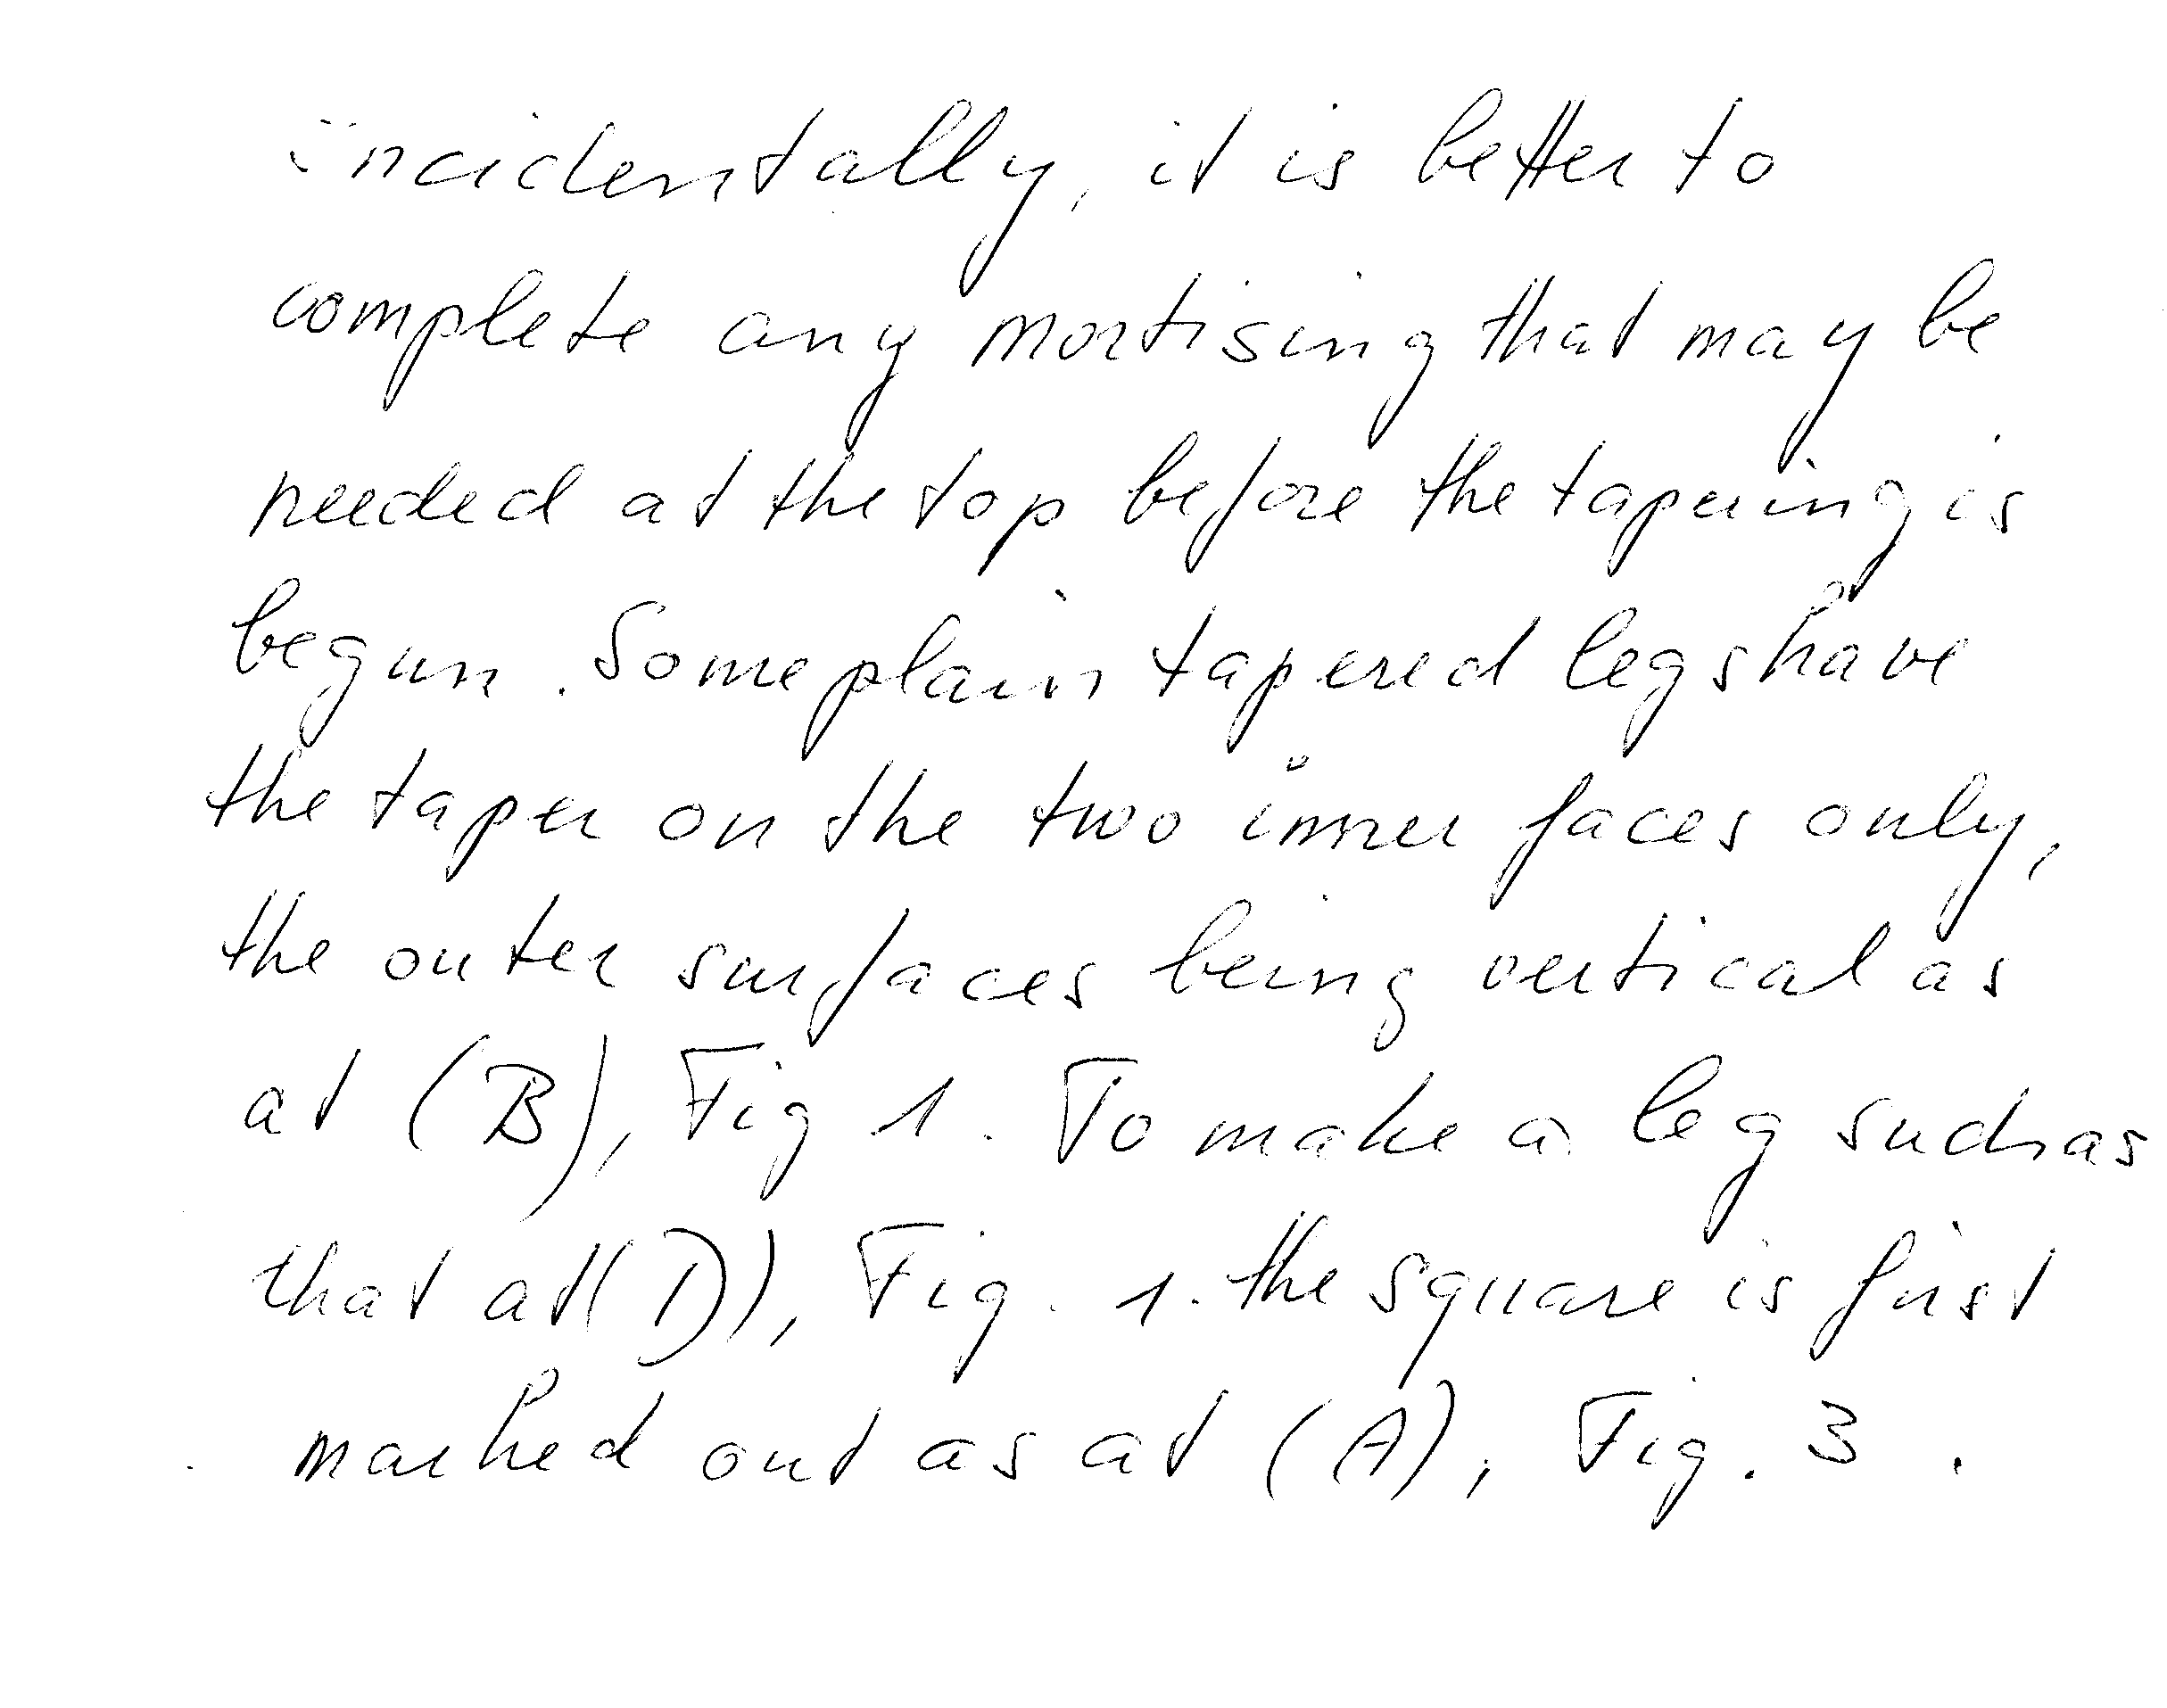 incidentally, it is better to
complete any mortising that may be
needed at the top before the tapering is
begun. Some plain tapered legs have
the taper on the two inner faces only,
the outer surfaces being vertical as
at (B), Fig 1. To make a leg such as
that at (D), Fig. 1. the square is first
marked out as at (A), Fig. 3.